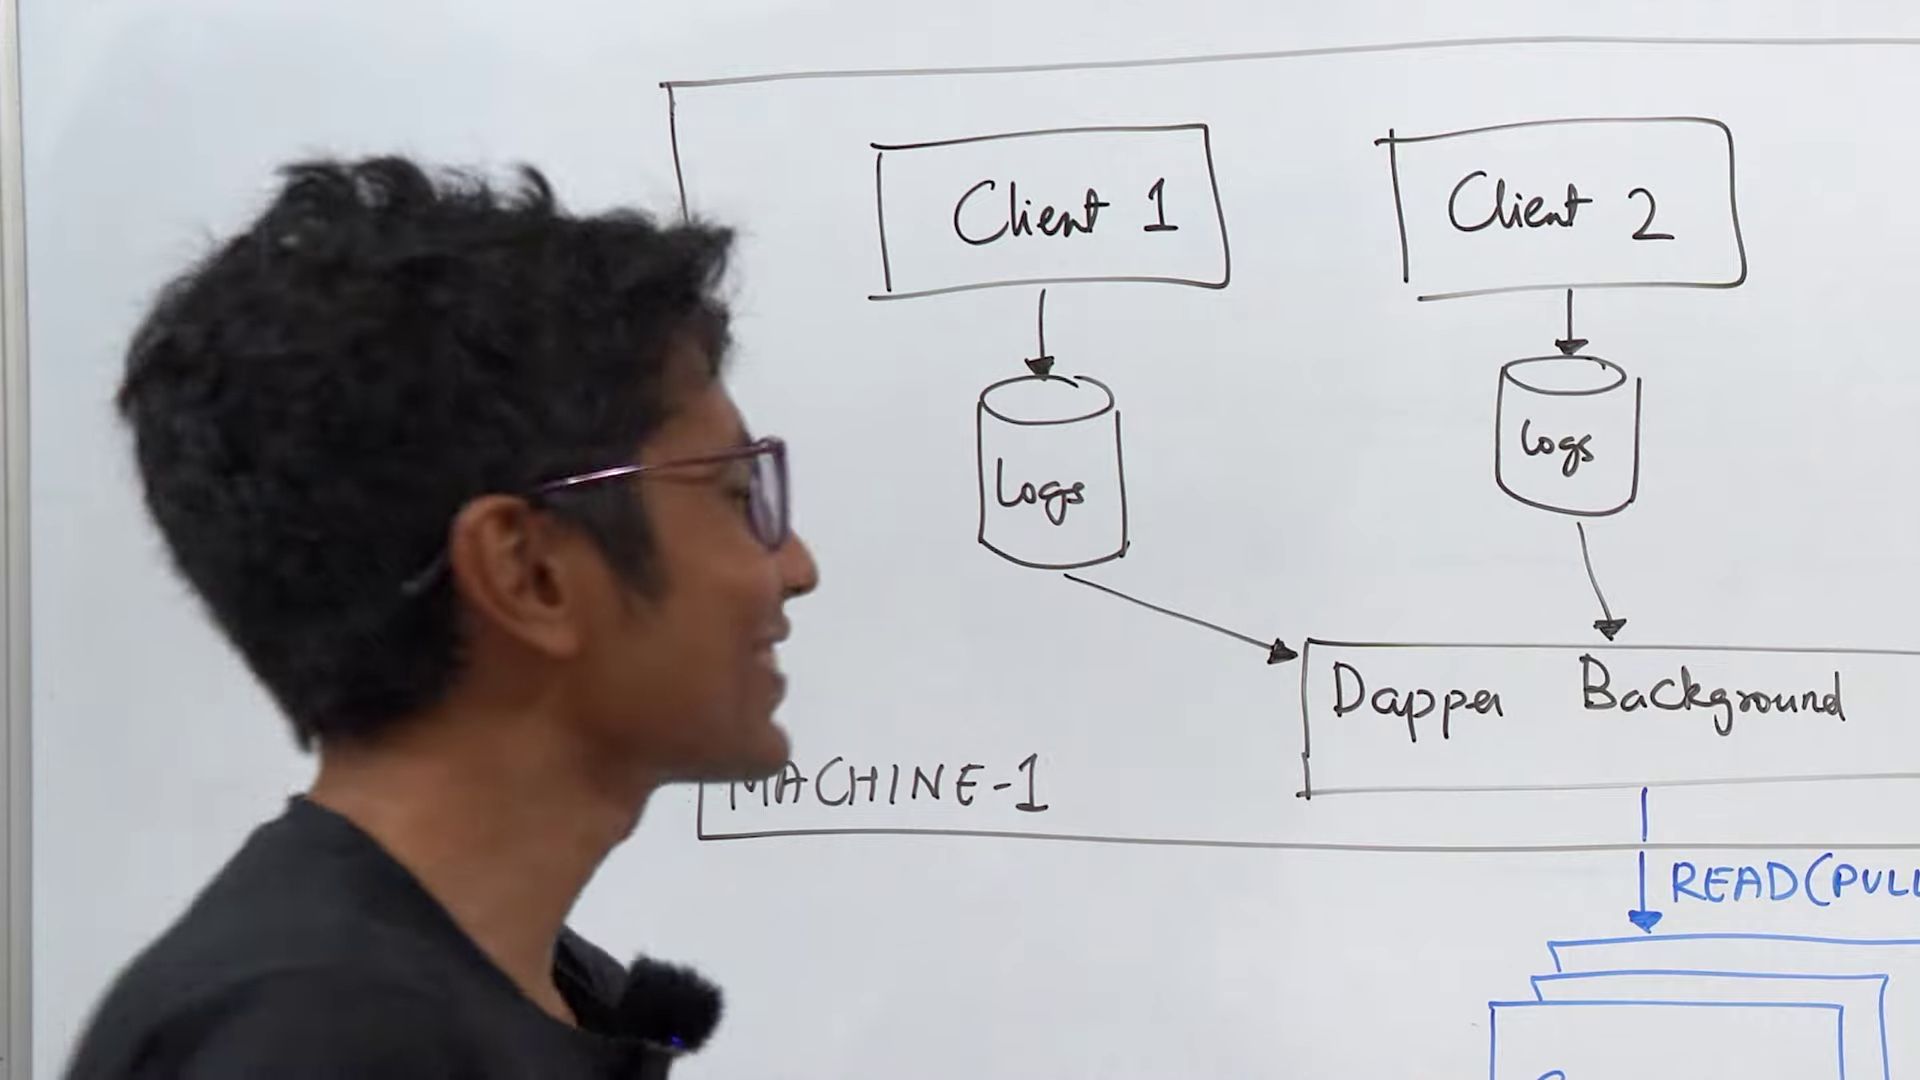 Client 1
Client 2
Logs
Logs
Dapper Background
MACHINE-1
READ(PULL